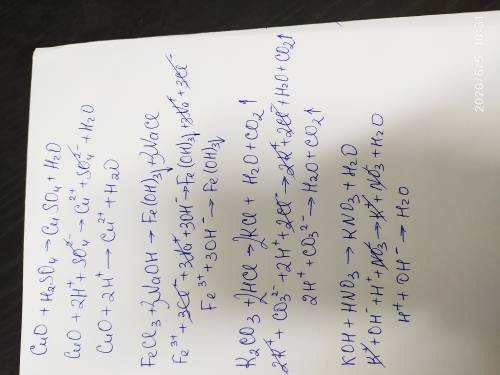 CuO + H2SO4 → CuSO4 + H2O
CuO + 2H⁺ + SO4²⁻ → Cu²⁺ + SO4²⁻ + H2O
CuO + 2H⁺ → Cu²⁺ + H2O
FeCl3 + 3NaOH → Fe(OH)3↓ + 3NaCl
Fe³⁺ + 3Cl⁻ + 3Na⁺ + 3OH⁻ → Fe(OH)3↓ + 3Na⁺ + 3Cl⁻
Fe³⁺ + 3OH⁻ → Fe(OH)3↓
K2CO3 + 2HCl → 2KCl + H2O + CO2↑
2K⁺ + CO3²⁻ + 2H⁺ + 2Cl⁻ → 2K⁺ + 2Cl⁻ + H2O + CO2↑
2H⁺ + CO3²⁻ → H2O + CO2↑
KOH + HNO3 → KNO3 + H2O
K⁺ + OH + H⁺ + NO3⁻ → K⁺ + NO3⁻ + H2O
H⁺ + OH⁻ → H2O
2020/6/5 10:31